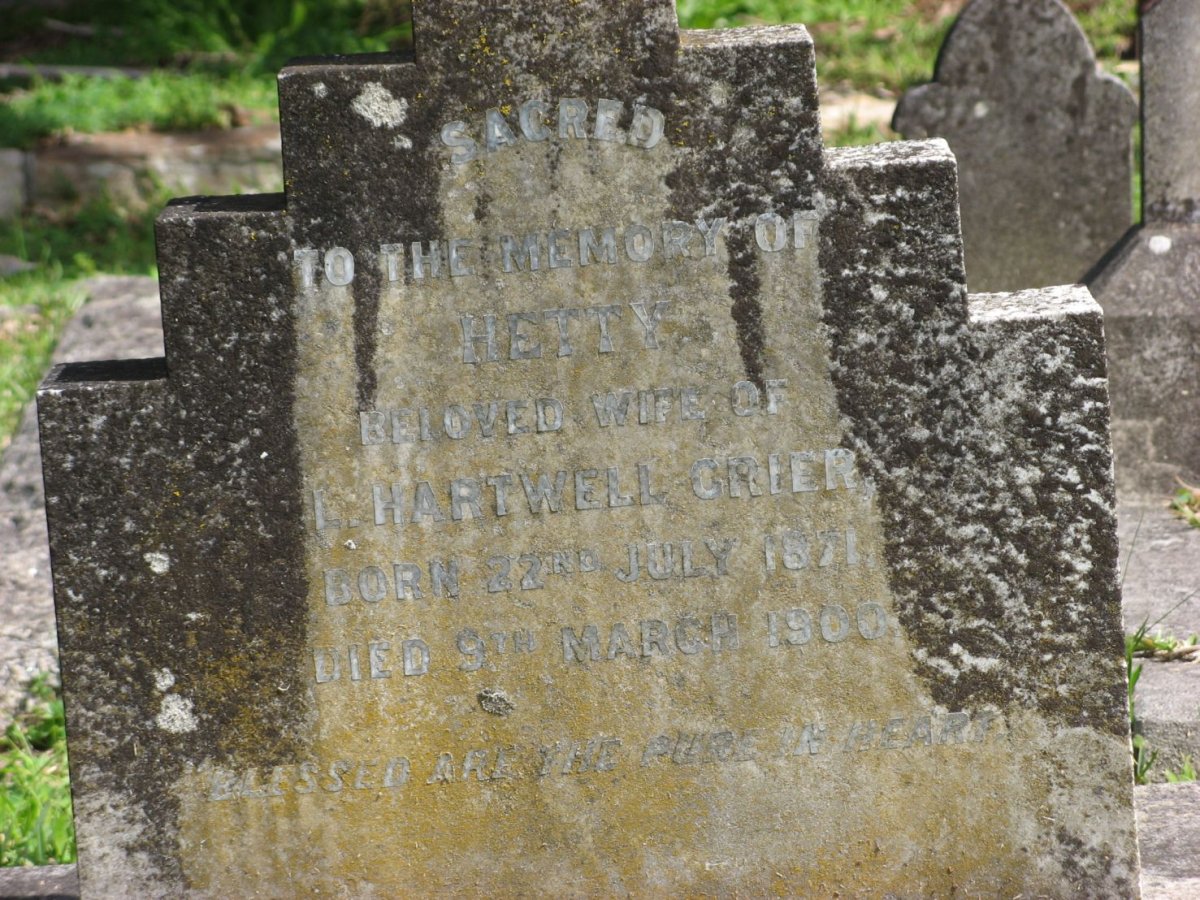 SACRED
TO THE MEMORY OF
HETTY
BELOVED WIFE OF
L. HARTWELL GRIER,
BORN 22ND JULY 1871,
DIED 9TH MARCH 1900.
BLESSED ARE THE PURE IN HEART.